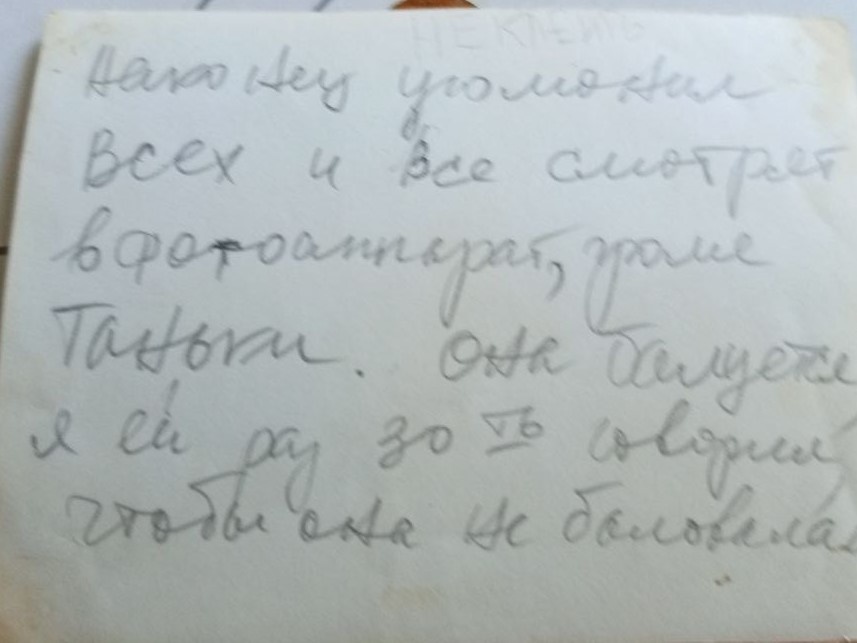 НЕ КЛЕИТЬ
наконец угомонил
всех и все смотрят
в фотоаппарат, кроме
Таньки. Она балуется
я ей раз 30 ть говорил,
чтобы она не баловалась